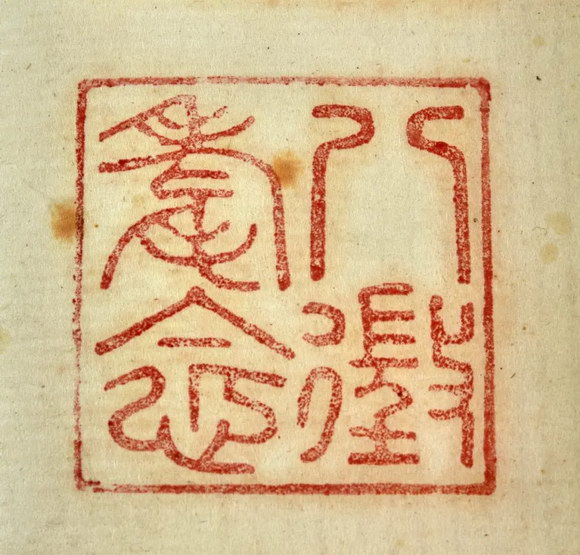 八徵
耄念